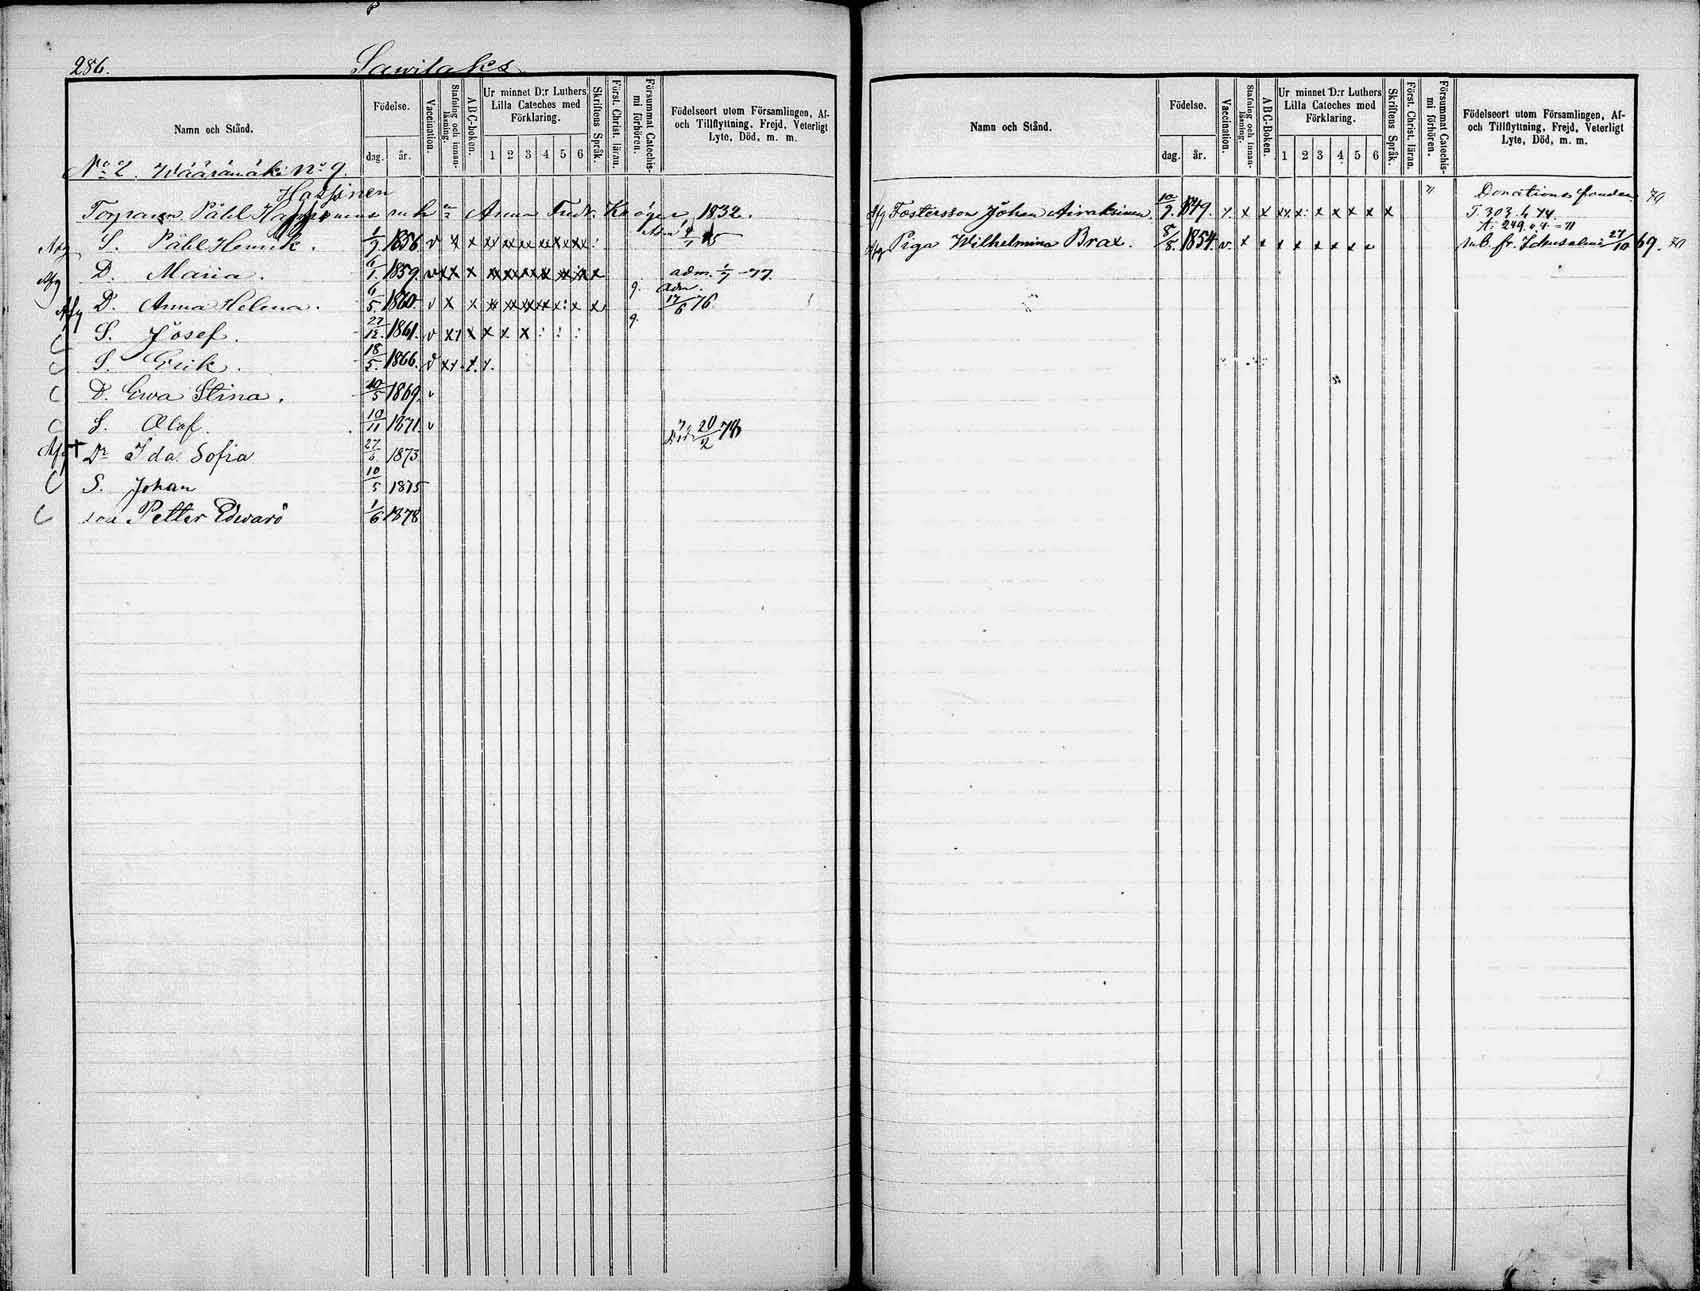 286. Sawilaks
Namn och Stånd.
Födelse.
dag. år.
Vaccination.
Stafning och innanläsning.
ABC-boken.
Ur minnet D:r Luthers Lilla Cateches med Förklaring.
1 2 3 4 5 6
Skriftens Språk.
Först. Christ. läran.
Försummat Catechismi förhören.
Födelseort utom Församlingen, Af- och Tillflyttning, Frejd, Veterligt Lyte, Död, m. m.
No 2. Wääränäki No 9.
Hassinen
Påhl Anna Fredr. 1832.
Afg S. Påhl Henrik. 1/9 1856 v x x
Afg D. Maria. 6/1 1859 adm. 1/7 -77
Afg D. Anna Helena. 6/5 1860 v x x adm. 17/6 76
S. Josef. 27/12 1861. v
S. Erik. 18/5 1866. v
D. Ewa Stina. 10/5 1869. v
S. Olof. 10/11 1871. v
Afg + Dr Ida Sofia 27/6 1873 död 20/2 78
S. Johan 10/5 1875
son Petter Edward 1/6 1878
Namn och Stånd.
Födelse.
dag. år.
Vaccination.
Stafning och innanläsning.
ABC-Boken.
Ur minnet D:r Luthers Lilla Cateches med Förklaring.
1 2 3 4 5 6
Skriftens Språk.
Först. Christ. läran.
Försummat Catechismi förhören.
Födelseort utom Församlingen, Af- och Tillflyttning, Frejd, Veterligt Lyte, Död, m. m.
Donations fonden
Afg Fosterson Johan Airaksinen 10/9 1849. T. 303. h 74.
A. 249.
Afg Piga Wilhelmina Brax. 8/8 1854. v. 27/10 69.